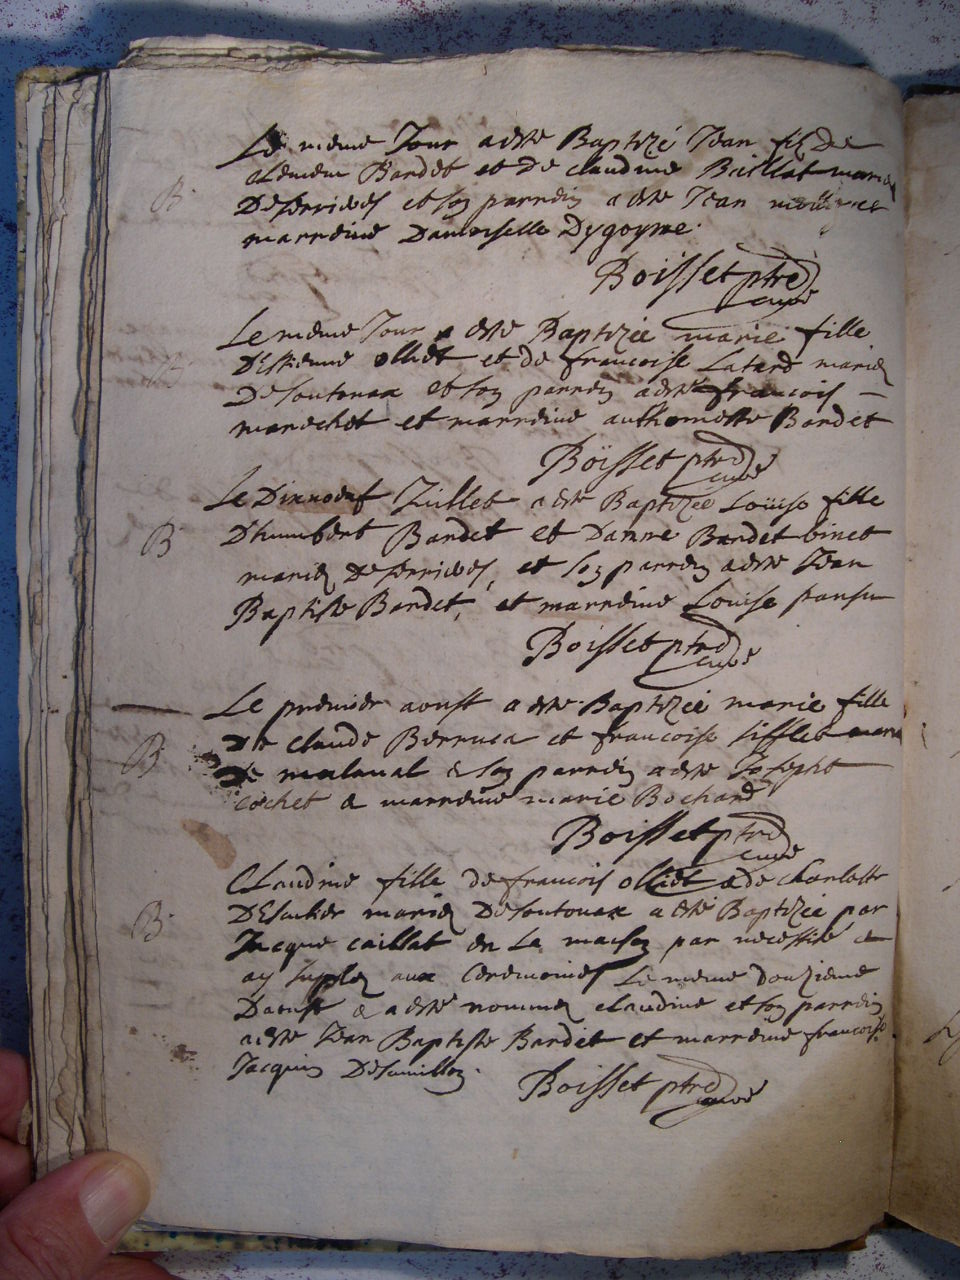 Le meme Jour a este Baptizé Jean fils de
Clement Bardet et de claudine Buillat mariez
B
Deserrieres et son parrein a este Jean
marreine Damoiselle Dygoyne.
Boisset ptre
curé
Le meme Jour a este Baptizée marie fille
B
D'Estienne olliet et de francoise Latard mariez
Desoutonax et son parrein a este francois
marechet et marreine anthoinette Bardet
Boisset ptre
curé
Le Dixnoeuf Juillet a este Baptizée Louise fille
B
D'humbert Bardet et Danne Bardet binet
mariez Deserrieres, et son parrein a este Jean
Baptiste Bardet, et marreine Louise pansu
Boisset ptre
curé
Le premier aoust a este Baptizée marie fille
B
De claude Berruca et francoise sifflet mariez
De malaval & son parrein a este Joseph
cochet & marreine marie Bochard
Boisset ptre
curé
Claudine fille de francois olliet & de charlotte
B
mariez Desoutonax a esté Baptizée par
Jacque caillat en La maison par necessité &
ay supplez aux Ceremonies Le meme douzieme
Daoust & a este nommez claudine et son parrein
a este Jean Baptiste Bardet et marreine francoise
Jacquin
Boisset ptre
curé